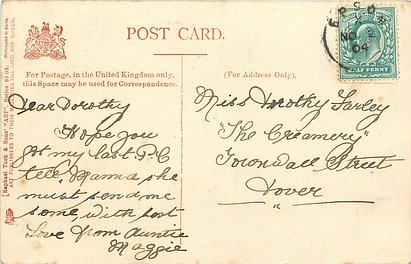 POST CARD.
For Postage, in the United Kingdom only,
this Space may be used for Correspondence.
(For Address Only.)
EPSOM
NO 2
04
HALF PENNY
Dear Dorothy
Hope you
got my last P.C
tell Mama she
must send me
some, with post
Love from Auntie
Maggie
Miss Dorothy Farley
"The Creamery"
Townwall Street
Dover
Raphael Tuck & Sons' "ART" Series
ART PUBLISHERS TO THEIR MAJESTIES THE KING AND QUEEN.